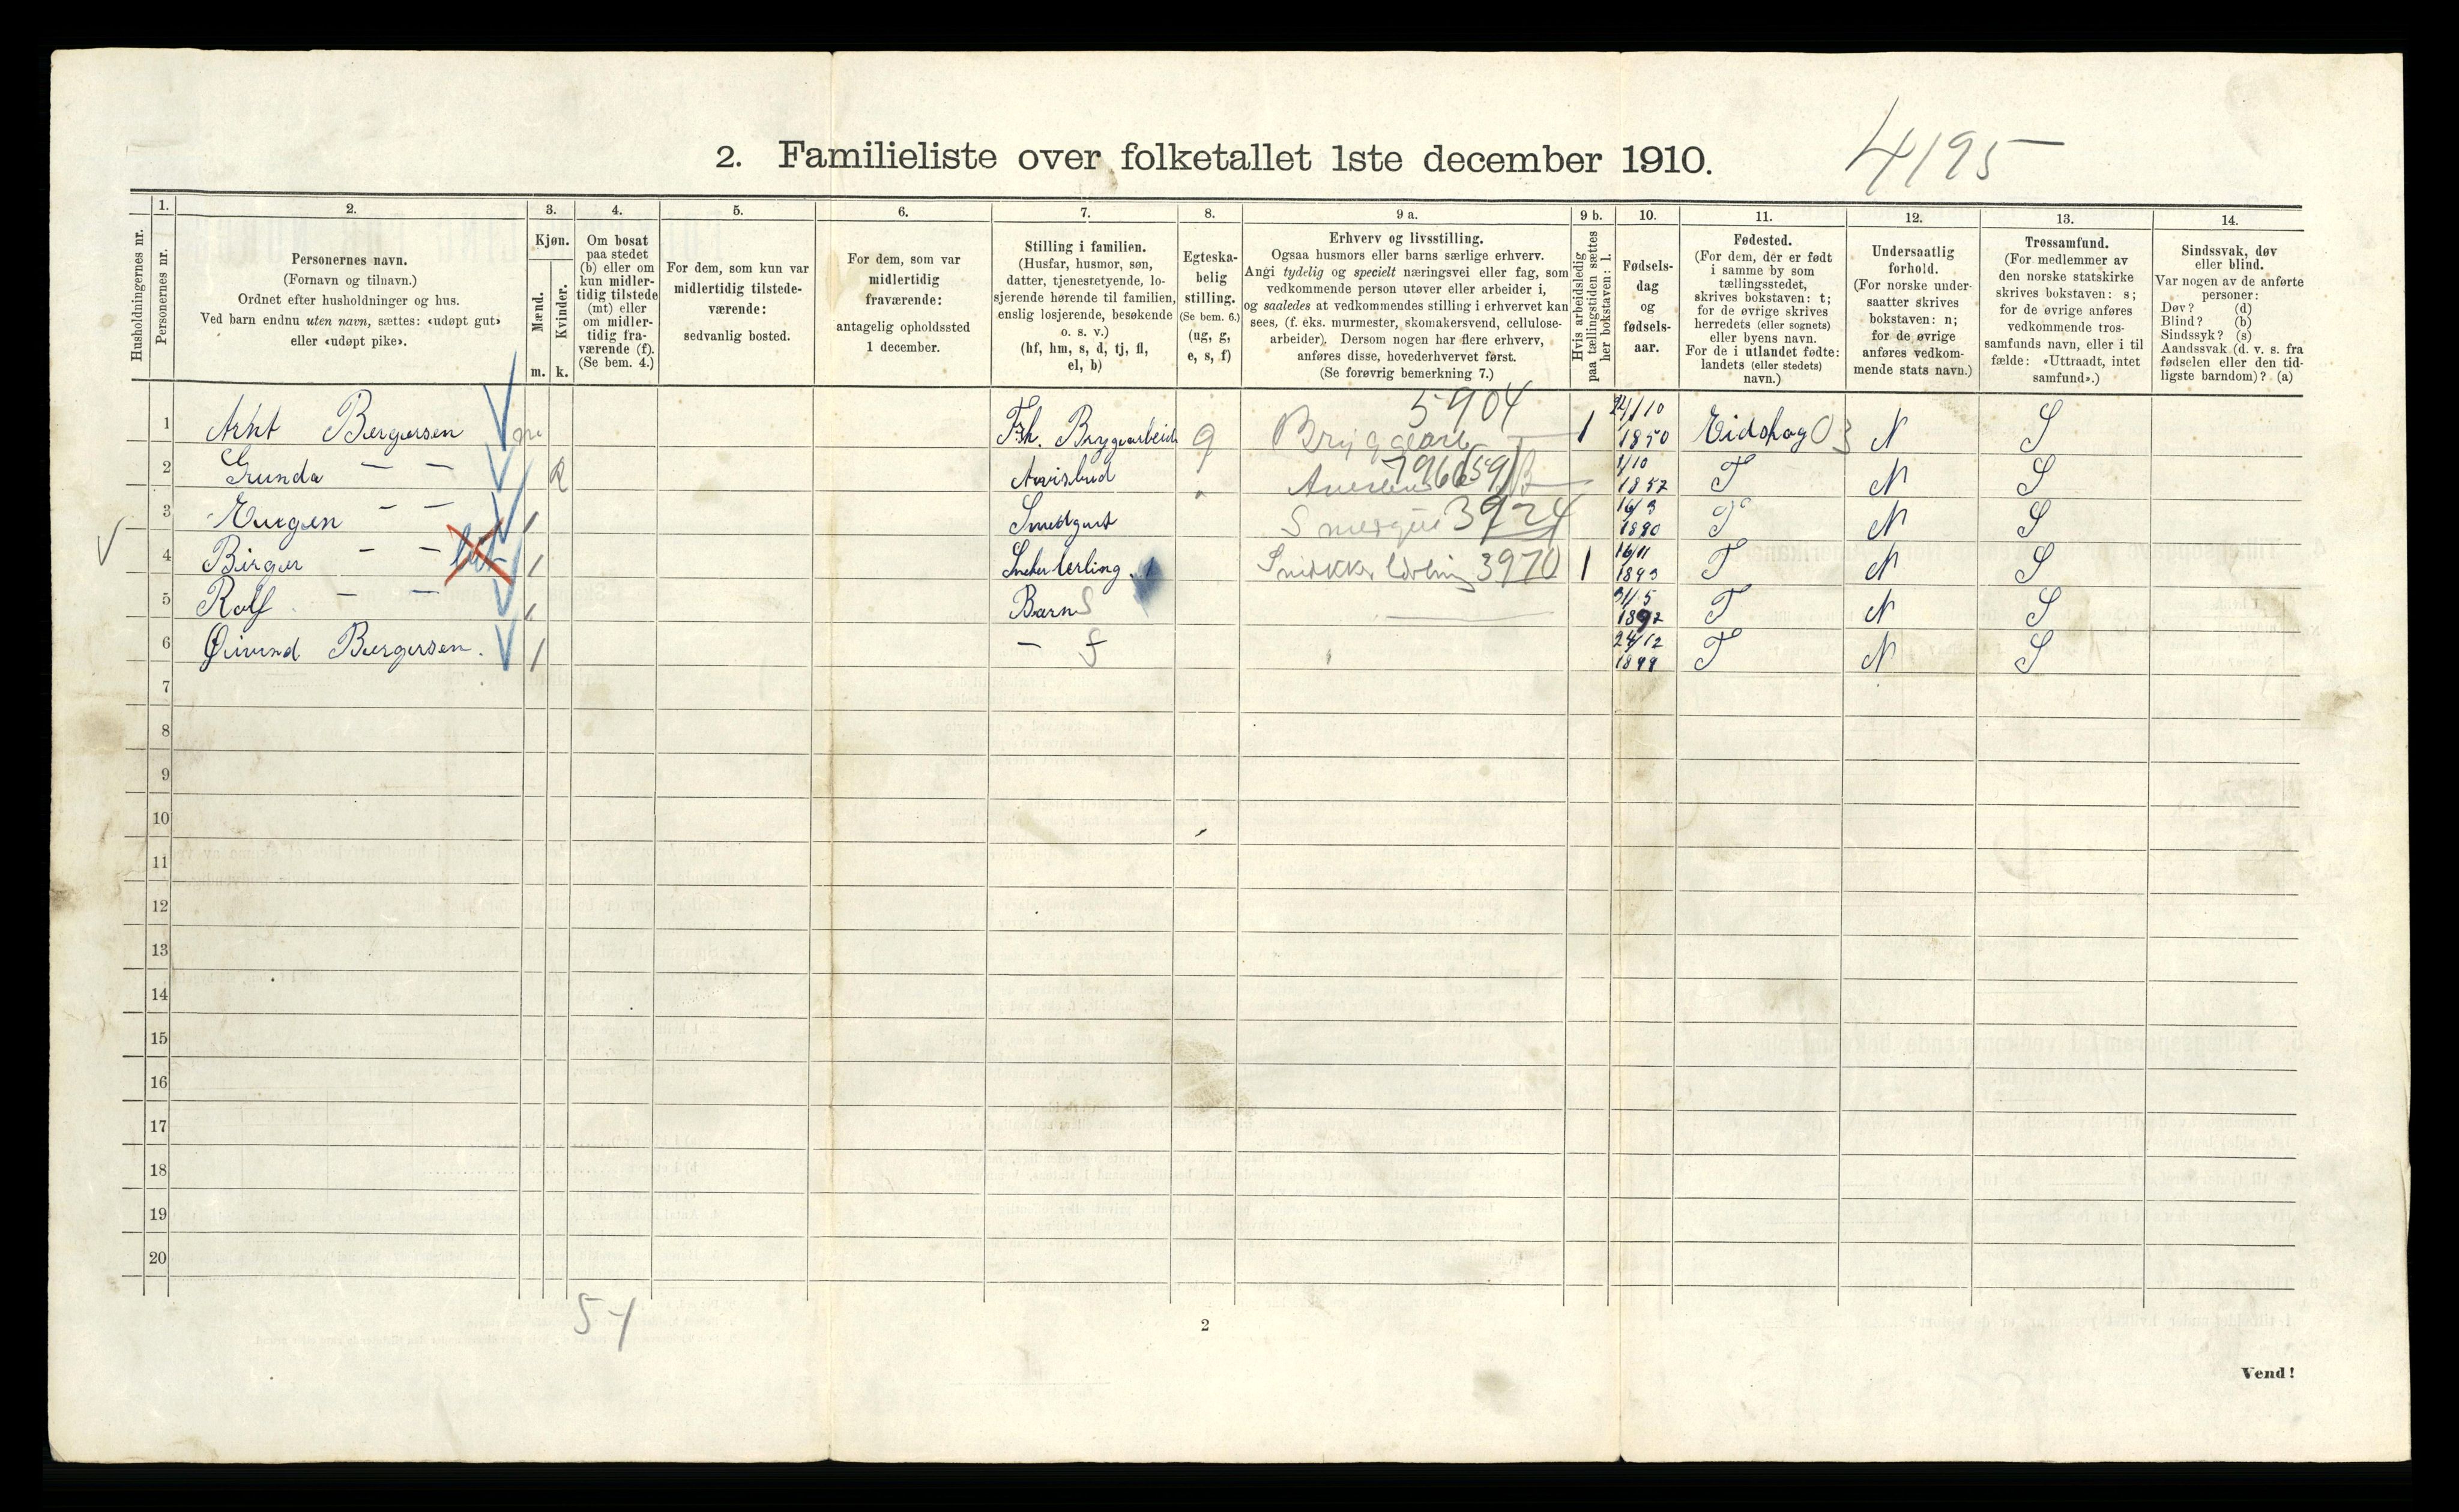 4195
2. Familieliste over folketallet 1ste december 1910.
Husholdningernes nr.
1.
Personernes nr.
2.
Personernes navn.
(Fornavn og tilnavn.)
Ordnet efter husholdninger og hus.
Ved barn endnu uten navn, sættes: «udøpt gut»
eller «udøpt pike».
3.
Kjøn.
Mænd.
Kvinder.
m. k.
4.
Om bosat
paa stedet
(b) eller om
kun midler-
tidig tilstede
(mt) eller
om midler-
tidig fra-
værende (f).
(Se bem. 4.)
5.
For dem, som kun var
midlertidig tilstede-
værende:
sedvanlig bosted.
6.
For dem, som var
midlertidig
fraværende:
antagelig opholdssted
1 december.
7.
Stilling i familien.
(Husfar, husmor, søn,
datter, tjenestetyende, lo-
sjerende hørende til familien,
enslig losjerende, besøkende
o. s. v.)
(hf, hm, s, d, tj, fl,
el, b)
8.
Egteska-
belig
stilling.
(Se bem. 6.)
(ug, g,
e, s, f)
9 a.
Erhverv og livsstilling.
Ogsaa husmors eller barns særlige erhverv.
Angi tydelig og specielt næringsvei eller fag, som
vedkommende person utøver eller arbeider i,
og saaledes at vedkommendes stilling i erhvervet kan
sees, (f. eks. murmester, skomakersvend, cellulose-
arbeider). Dersom nogen har flere erhverv,
anføres disse, hovederhvervet først.
(Se forøvrig bemerkning 7.)
9 b.
Hvis arbeidsledig
paa tællingstiden sættes
her bokstaven: l.
10.
Fødsels-
dag
og
fødsels-
aar.
11.
Fødested.
(For dem, der er født
i samme by som
tællingsstedet,
skrives bokstaven: t;
for de øvrige skrives
herredets (eller sognets)
eller byens navn.
For de i utlandet fødte:
landets (eller stedets)
navn.)
12.
Undersaatlig
forhold.
(For norske under-
saatter skrives
bokstaven: n;
for de øvrige
anføres vedkom-
mende stats navn.)
13.
Trossamfund.
(For medlemmer av
den norske statskirke
skrives bokstaven: s;
for de øvrige anføres
vedkommende tros-
samfunds navn, eller i til
fælde: «Uttraadt, intet
samfund».)
14.
Sindssvak, døv
eller blind.
Var nogen av de anførte
personer:
Døv? (d)
Blind? (b)
Sindssyk? (s)
Aandssvak (d. v. s. fra
fødselen eller den tid-
ligste barndom)? (a)
5904
1 Arnt Bergersen m Bryggearbeid g Bryggearb l 24/10 1850 Eidskog N S
2 Gunda — — k Avisbud 1/10 1857 T N S
3 — — Smedgut 3924 16/3 1880 T N S
4 Birger — — lærling Snekker lærling 3970 l 16/11 1893 T N S
5 Rolf — — Barn S 31/5 1897 T N S
6 Øivind Bergersen. — 24/12 1899 T N S
7
8
9
10
11
12
13
14
15
16
17
18
19
20
5-1
2
Vend!